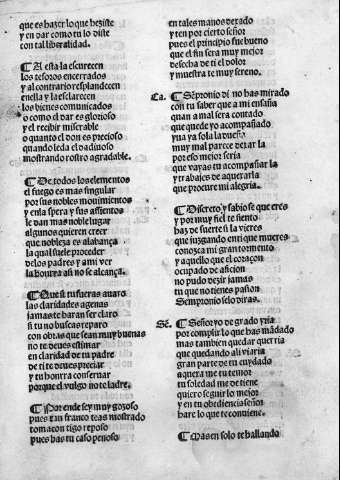 que es hazer lo que heziste
y en dar como tu lo diste
con tal liberalidad.
¶ A esta la escurecen
los tesoros encerrados
y al contrario resplandecen
en ella y la esclarecen
los bienes comunicados
o como el dar es glorioso
y el recibir miserable
o quanto el don es precioso
quando le da el
mostrando rostro agradable.
¶ De todos los elementos
el fuego es mas singular
por sus nobles mouimientos
y en la spera y sus assientos
le dan mas noble lugar
algunos quieren creer
que nobleza es alabança
la qual suele proceder
delos padres y a mi ver
la honrra assi no se alcança.
¶ Que si tu fueras auaro
las claridades agenas
jamas te haran ser claro
si tu no buscas reparo
con obras que sean muy buenas
no te deues estimar
en claridad de tu padre
de ti te deues preciar
y tu honrra conseruar
porque el vulgo no te ladre.
¶ Por ende sey muy gozoso
pues tan franco te as mostrado
toma contigo reposo
pues has tu caso penoso
en tales manos dexado
y ten por cierto señor
pues el principio fue bueno
que el fin sera muy mejor
desecha de ti el dolor
y muestra te muy sereno.
Ca. ¶ Sempronio di no has mirado
con tu saber que a mi ensaña
quan a mal sera contado
que quede yo acompañado
y va ya sola la dueña
muy mal parece dexar la
por eso mejor seria
que vayas tu acompañar la
y trabajes de aquexarla
que procure mi alegria.
¶ Discreto y sabio se que eres
y por muy fiel te siento
haz de suerte si la vieres
que juzgando en ti que mueres
conozca mi gran tormento
y aquello que el coraçon
ocupado de aficion
no pudo dezir jamas
tu que no tienes pasion
Sempronio selo diras.
Sē. ¶ Señor yo de grado yria
por complir lo que has mādado
mas tambien quedar querria
que quedando aliuiaria
gran parte de tu cuydado
aquexa me tu temor
tu soledad me detiene
quiero seguir lo mejor
y en tu obediencia señor
hare lo que te conuiene.
¶ Mas en solo te hallando